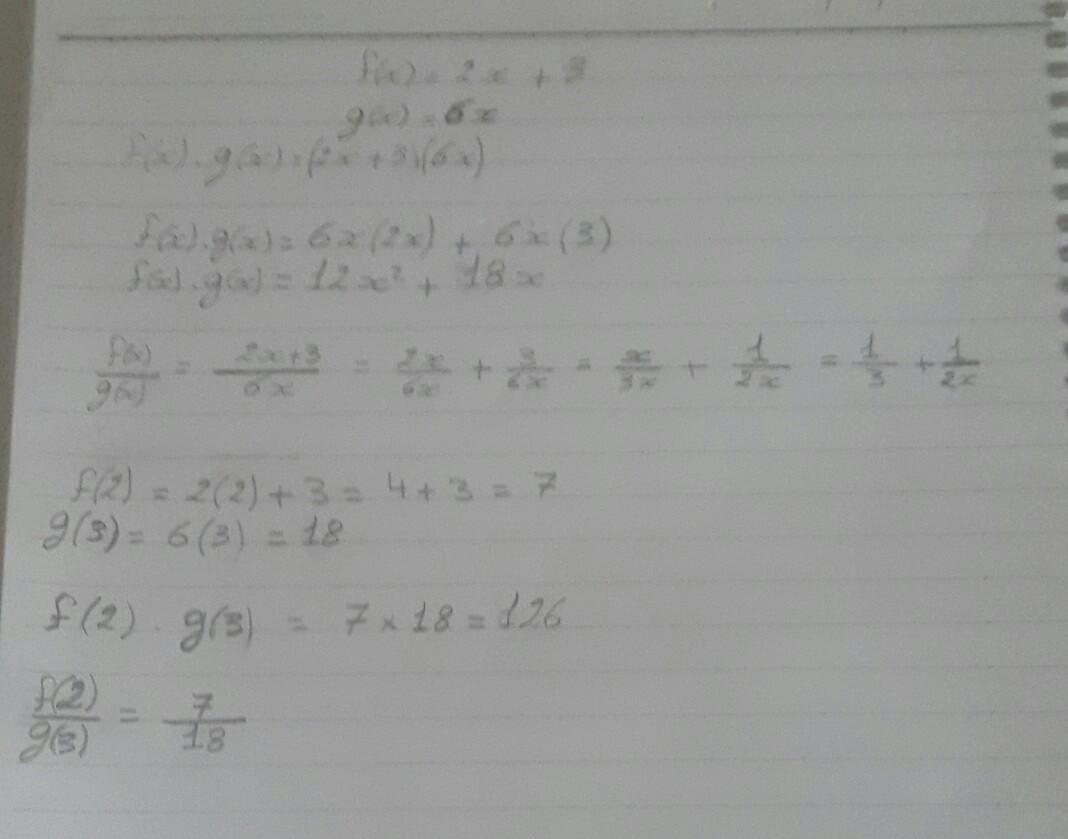 f(x) = 2x + 3
g(x) = 6x
f(x) . g(x) = (2x + 3)(6x)
f(x) . g(x) = 6x(2x) + 6x(3)
f(x) . g(x) = 12x² + 18x
f(x)/g(x) = 2x+3/6x = 2x/6x + 3/6x = x/3x + 1/2x = 1/3 + 1/2x
f(2) = 2(2) + 3 = 4 + 3 = 7
g(3) = 6(3) = 18
f(2) . g(3) = 7 × 18 = 126
f(2)/g(3) = 7/18